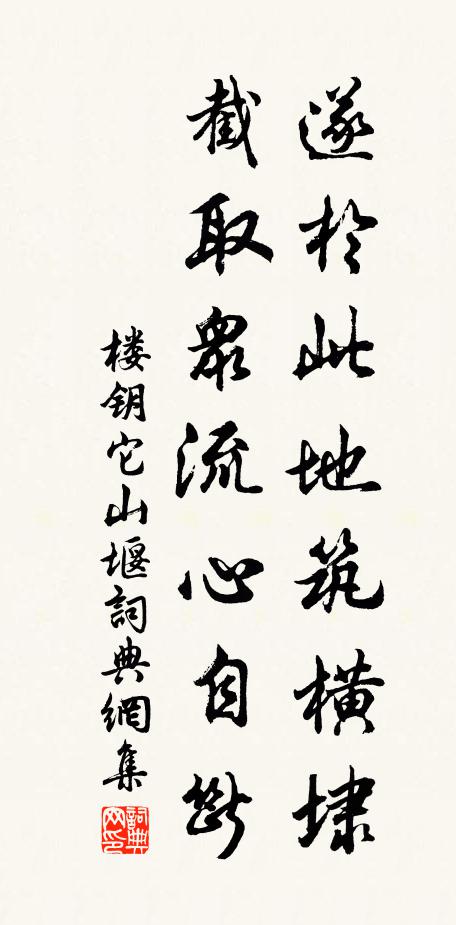 遂於此地筑橫埭
截取衆流心自斷
楼钥它山堰詞典網集
詞典网印